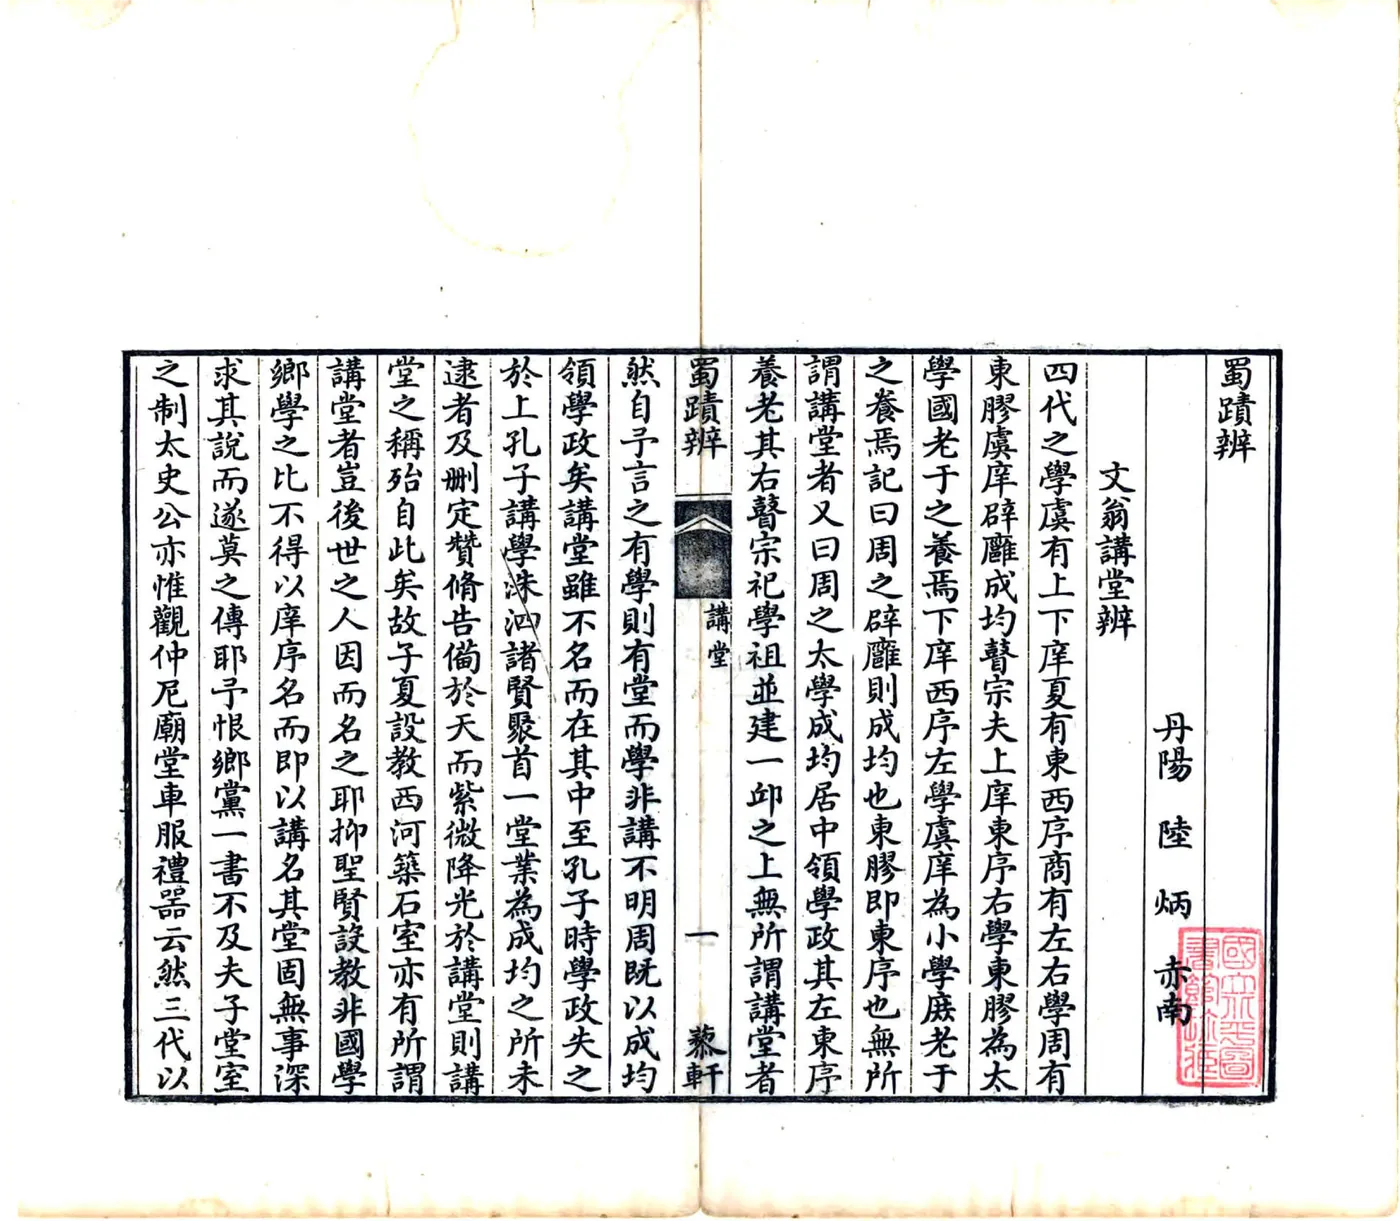 蜀蹟辨
丹陽 陸 炳 赤南
文翁講堂辨
四代之學虞有上下庠夏有東西序商有左右學周有
東膠虞庠辟廱成均瞽宗夫上庠東序右學東膠為太
學國老于之養焉下庠西序左學虞庠為小學庶老于
之養焉記曰周之辟廱則成均也東膠即東序也無所
謂講堂者又曰周之太學成均居中領學政其左東序
養老其右瞽宗祀學祖並建一邱之上無所謂講堂者
蜀蹟辨
講堂
一
藜軒
然自予言之有學則有堂而學非講不明周既以成均
領學政矣講堂雖不名而在其中至孔子時學政失之
於上孔子講學洙泗諸賢聚首一堂業為成均之所未
逮者及刪定贊脩告備於天而紫微降光於講堂則講
堂之稱殆自此矣故子夏設教西河築石室亦有所謂
講堂者豈後世之人因而名之耶抑聖賢設教非國學
鄉學之比不得以庠序名而即以講名其堂固無事深
求其說而遂莫之傳耶予恨鄉黨一書不及夫子堂室
之制太史公亦惟觀仲尼廟堂車服禮器云然三代以
國立北平圖
書館收藏